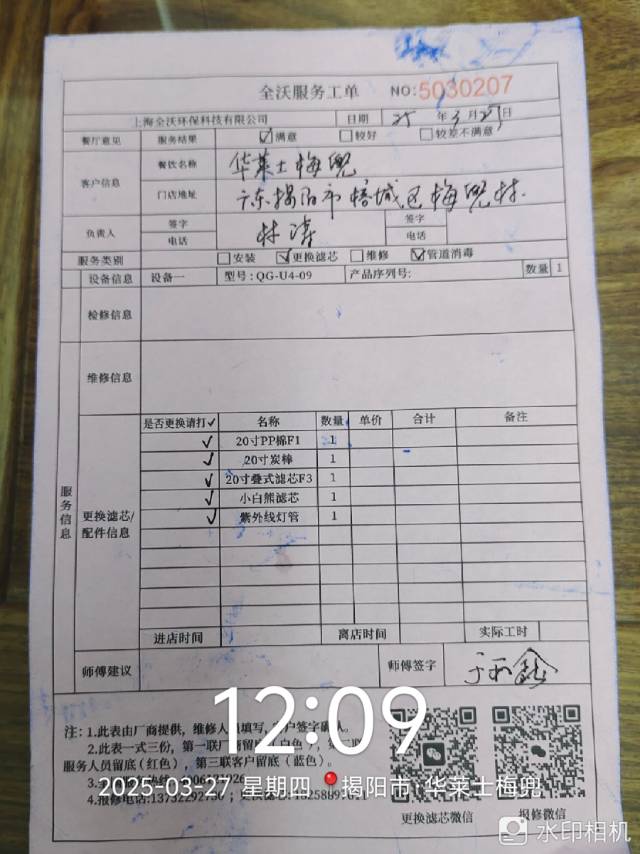 全沃服务工单 NO:5030207
上海全沃环保科技有限公司 日期 25 年 3 月 27 日
餐厅意见 服务结果 ☑满意 □较好 □较差不满意
客户信息 餐饮名称 华莱士梅兜
门店地址 广东揭阳市榕城区梅兜林
负责人 签字 林涛 签字
电话 电话
服务类别 □安装 ☑更换滤芯 □维修 ☑管道消毒
设备信息 设备一 型号:QG-U4-09 产品序列号: 数量 1
检修信息
维修信息
服务信息
更换滤芯/配件信息
是否更换请打✓ 名称 数量 单价 合计 备注
✓ 20寸PP棉F1 1
✓ 20寸炭棒 1
✓ 20寸叠式滤芯F3 1
✓ 小白熊滤芯 1
✓ 紫外线灯管 1
进店时间 离店时间 实际工时
师傅建议 师傅签字
注: 1.此表由厂商提供, 维修人员填写, 客户签字确认。
2.此表一式三份, 第一联厂商留底(白色), 第二联
服务人员留底(红色), 第三联客户留底(蓝色)。
4.报修电话:
更换滤芯微信 报修微信
12:09
2025-03-27 星期四 揭阳市·华莱士梅兜
水印相机